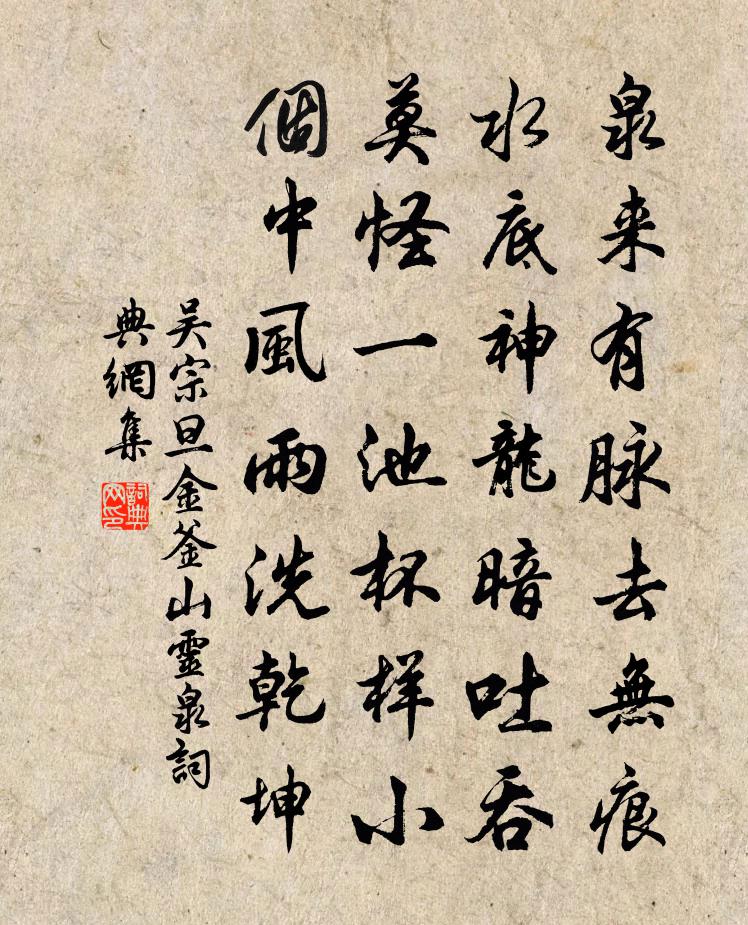 泉来有脉去無痕
水底神龍暗吐吞
莫怪一池杯样小
個中風雨洗乾坤
吴宗旦金釜山靈泉詞
典網集
詞典網印